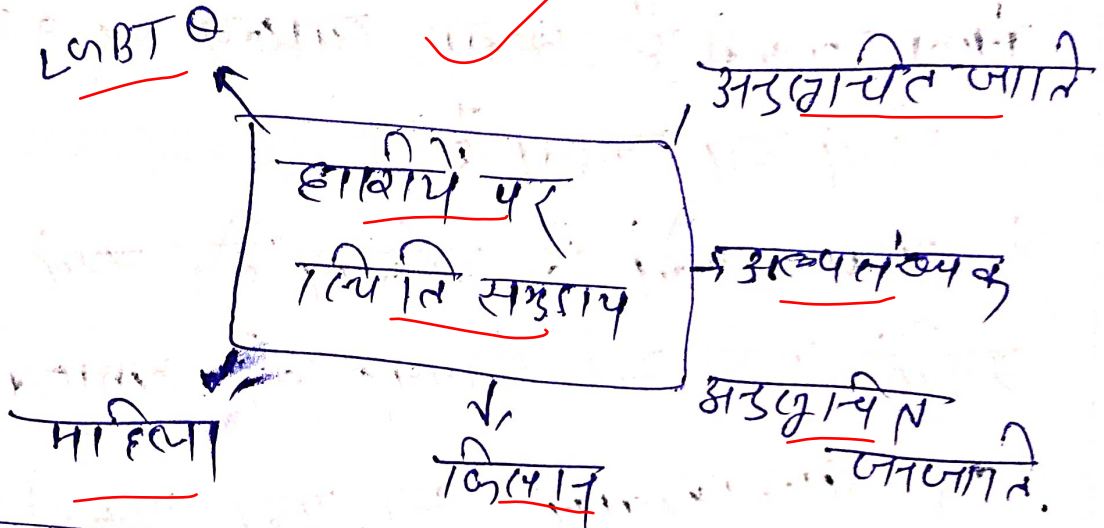 LGBTQ
अनुसूचित जाति
हाशिये पर
स्थिति समुदाय
अल्पसंख्यक
अनुसूचित
जनजाति
महिला
किसान